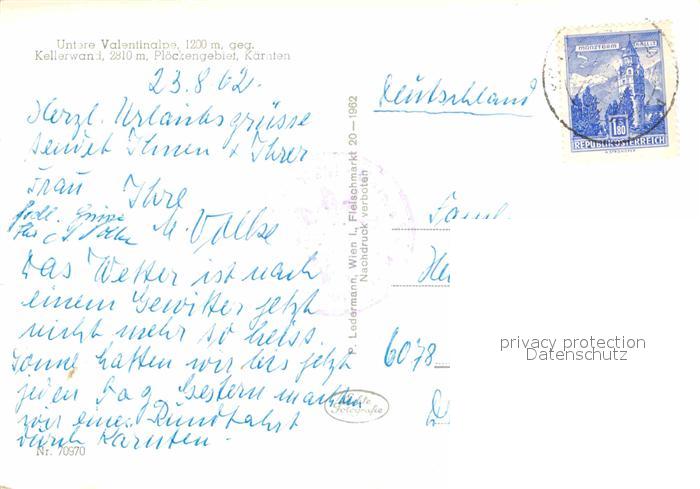 Untere Valentinalpe, 1200 m, geg.
Kellerwand, 2810 m, Plöckengebiet, Kärnten
23.8.62.
Herzl. Urlaubsgrüsse
sendet Ihnen + Ihrer
Frau Ihre
M. Volke
Das Wetter ist nach
einem Gewitter jetzt
nicht mehr so heiss.
Sonne hatten wir bis jetzt
jeden Tag. Gestern machten
wir eine Rundfahrt
durch Kärnten.
Nr. 70970
P. Ledermann, Wien I., Fleischmarkt 20—1962
Nachdruck verboten
Echte
Fotografie
Deutschland
MÜNZTURM HALL I. T.
1.80
REPUBLIK ÖSTERREICH
6078
privacy protection
Datenschutz